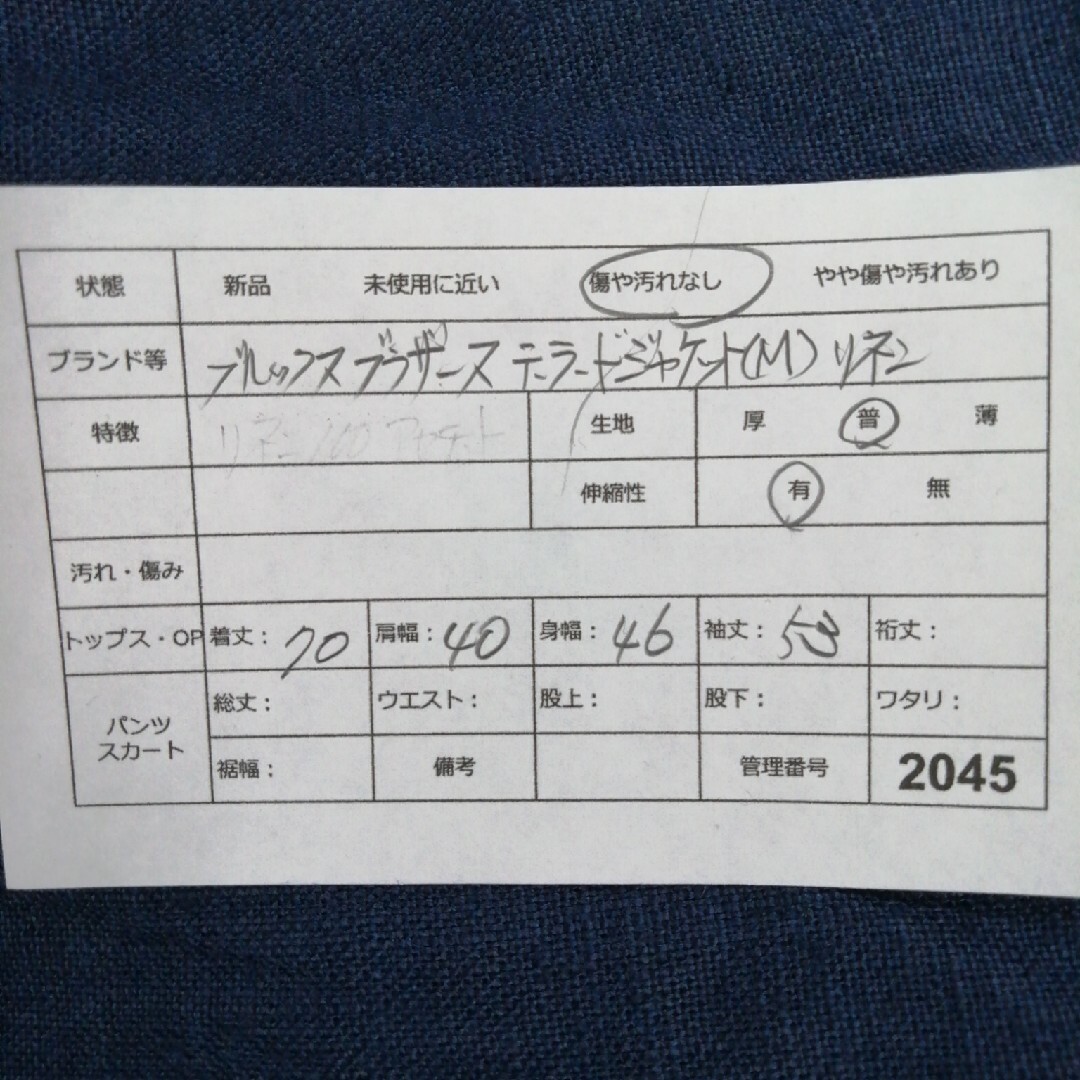 状態 新品 未使用に近い 傷や汚れなし やや傷や汚れあり
ブランド等 ブルックスブラザース テーラードジャケット(M) リネン
特徴 リネン100 生地 厚 普 薄
伸縮性 有 無
汚れ・傷み
トップス・OP 着丈: 70 肩幅: 40 身幅: 46 袖丈: 53 裄丈:
パンツ スカート 総丈: ウエスト: 股上: 股下: ワタリ:
裾幅: 備考 管理番号 2045